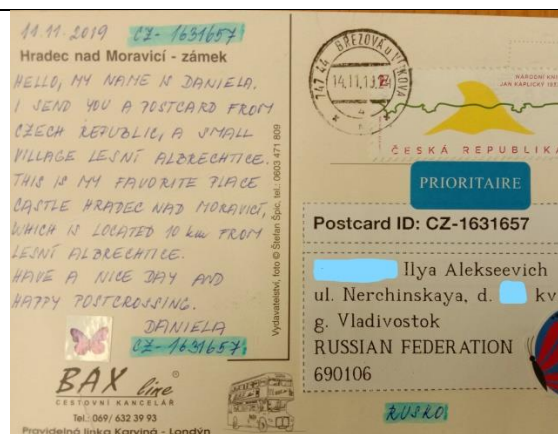 11.11.2019 CZ-1631657
Hradec nad Moravicí - zámek
HELLO, MY NAME IS DANIELA.
I SEND YOU A POSTCARD FROM
CZECH REPUBLIC, A SMALL
VILLAGE LESNÍ ALBRECHTICE.
THIS IS MY FAVORITE PLACE
CASTLE HRADEC NAD MORAVICÍ,
WHICH IS LOCATED 10 km FROM
LESNÍ ALBRECHTICE.
HAVE A NICE DAY AND
HAPPY POSTCROSSING.
DANIELA
CZ-1631657
BAX line
CESTOVNÍ KANCELÁŘ
Tel.: 069/ 632 39 93
Pravidelná linka Karviná - Londýn
Vydavatelství, foto © Štefan Špic, tel.: 0603 471 809
747 44 BŘEZOVÁ u VÍTKOVA
14.11.19
NÁRODNÍ
JAN KAPLICKÝ
ČESKÁ REPUBLIKA
PRIORITAIRE
Postcard ID: CZ-1631657
Ilya Alekseevich
ul. Nerchinskaya, d. kv
g. Vladivostok
RUSSIAN FEDERATION
690106
RUSKO